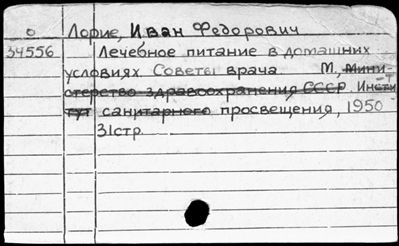 О Лорие, Иван Федорович
34556 Лечебное питание в домашних
условиях Советы врача М, Мини-
стерство здравоохранения СССР Инсти
тут санитарного просвещения, 1950
31стр.